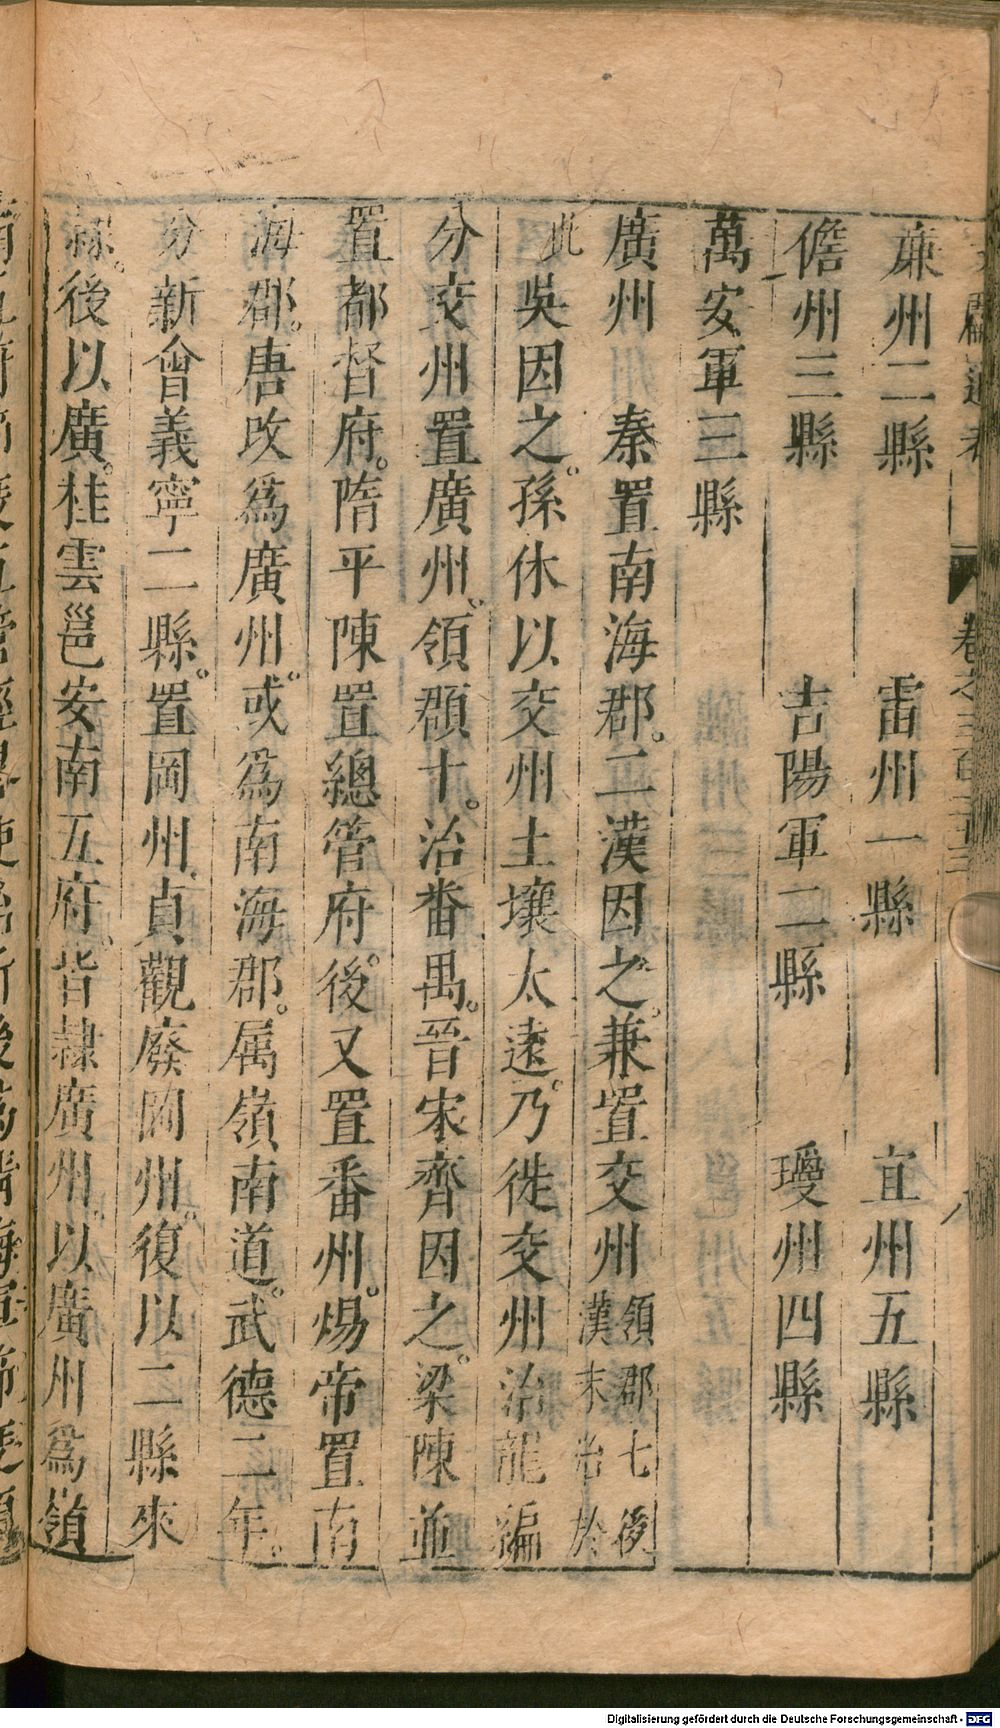 廉州二縣 雷州一縣 宜州五縣
儋州三縣 吉陽軍二縣 瓊州四縣
萬安軍三縣
廣州 秦置南海郡。二漢因之。兼置交州領郡七後漢末治於
此吳因之。孫休以交州土壤太遠。乃徙交州治龍編
分交州置廣州。領郡十。治番禺。晉宋齊因之。梁陳並
置都督府。隋平陳置總管府。後又置番州。煬帝置南
海郡。唐改爲廣州。或爲南海郡。属嶺南道。武德二年。
分新會義寧二縣。置岡州。貞觀廢岡州。復以二縣來
隸。後以廣。桂雲邕安南五府。皆隷廣州。以廣州爲嶺
卷之三百二十三
八
Digitalisierung gefördert durch die Deutsche Forschungsgemeinschaft - DFG